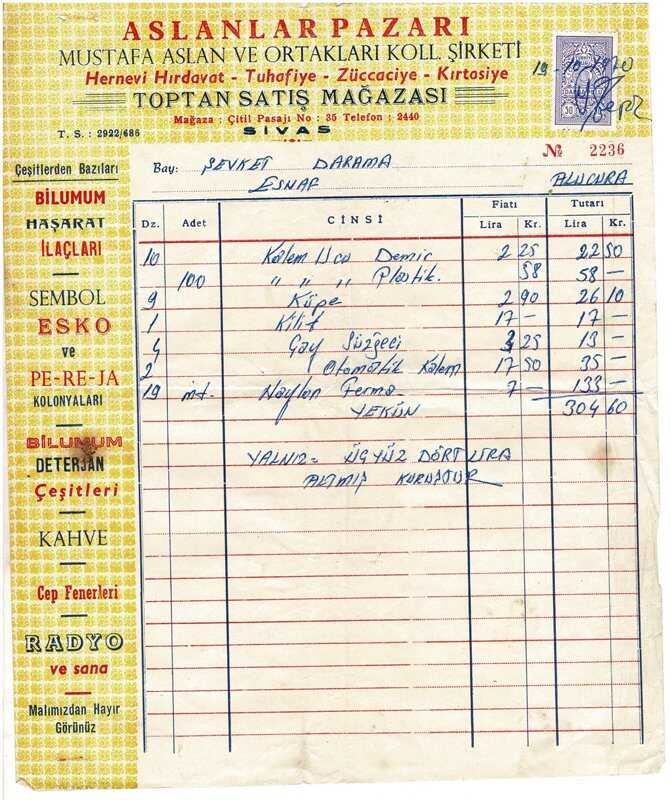 ASLANLAR PAZARI
MUSTAFA ASLAN VE ORTAKLARI KOLL. ŞİRKETİ
Hernevi Hırdavat - Tuhafiye - Züccaciye - Kırtasiye
TOPTAN SATIŞ MAĞAZASI
Mağaza : Çitil Pasajı No : 35 Telefon : 2440
T. S. : 2922/686
SİVAS
19-10-1970
30
№ 2236
Bay: ŞEVKET DARAMA
ESNAF ALUCURA
Dz. Adet CİNSİ Fiatı Tutarı
Lira Kr. Lira Kr.
10 Kalem Uco Demir 2 25 22 50
100 " " " Plastik. 58 58 —
9 Küpe 2 90 26 10
1 Kilit 17 — 17 —
4 Çay Süzgeci 3 25 13 —
2 Otomatik Kalem 17 50 35 —
19 mt. Naylon Ferma 7 — 133 —
YEKÜN 304 60
YALNIZ= ÜÇYÜZ DÖRT LİRA
ALTMIŞ KURUŞTUR
Çeşitlerden Bazıları
BİLUMUM
HAŞARAT
İLAÇLARI
SEMBOL
ESKO
ve
PE-RE-JA
KOLONYALARI
BİLUMUM
DETERJAN
Çeşitleri
KAHVE
Cep Fenerleri
RADYO
ve sana
Malımızdan Hayır
Görünüz